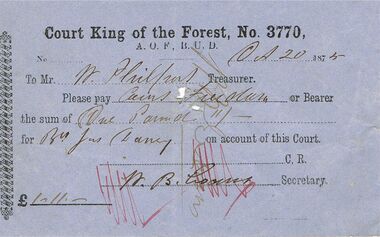 Court King of the Forest, No. 3770,
A. O. F., B. U. D.
No Oct 20 1875
To Mr. W Philpot Treasurer.
Please pay or Bearer
the sum of One Pound
for Bro Jas on account of this Court.
C. R.
W. B. Secretary.
£